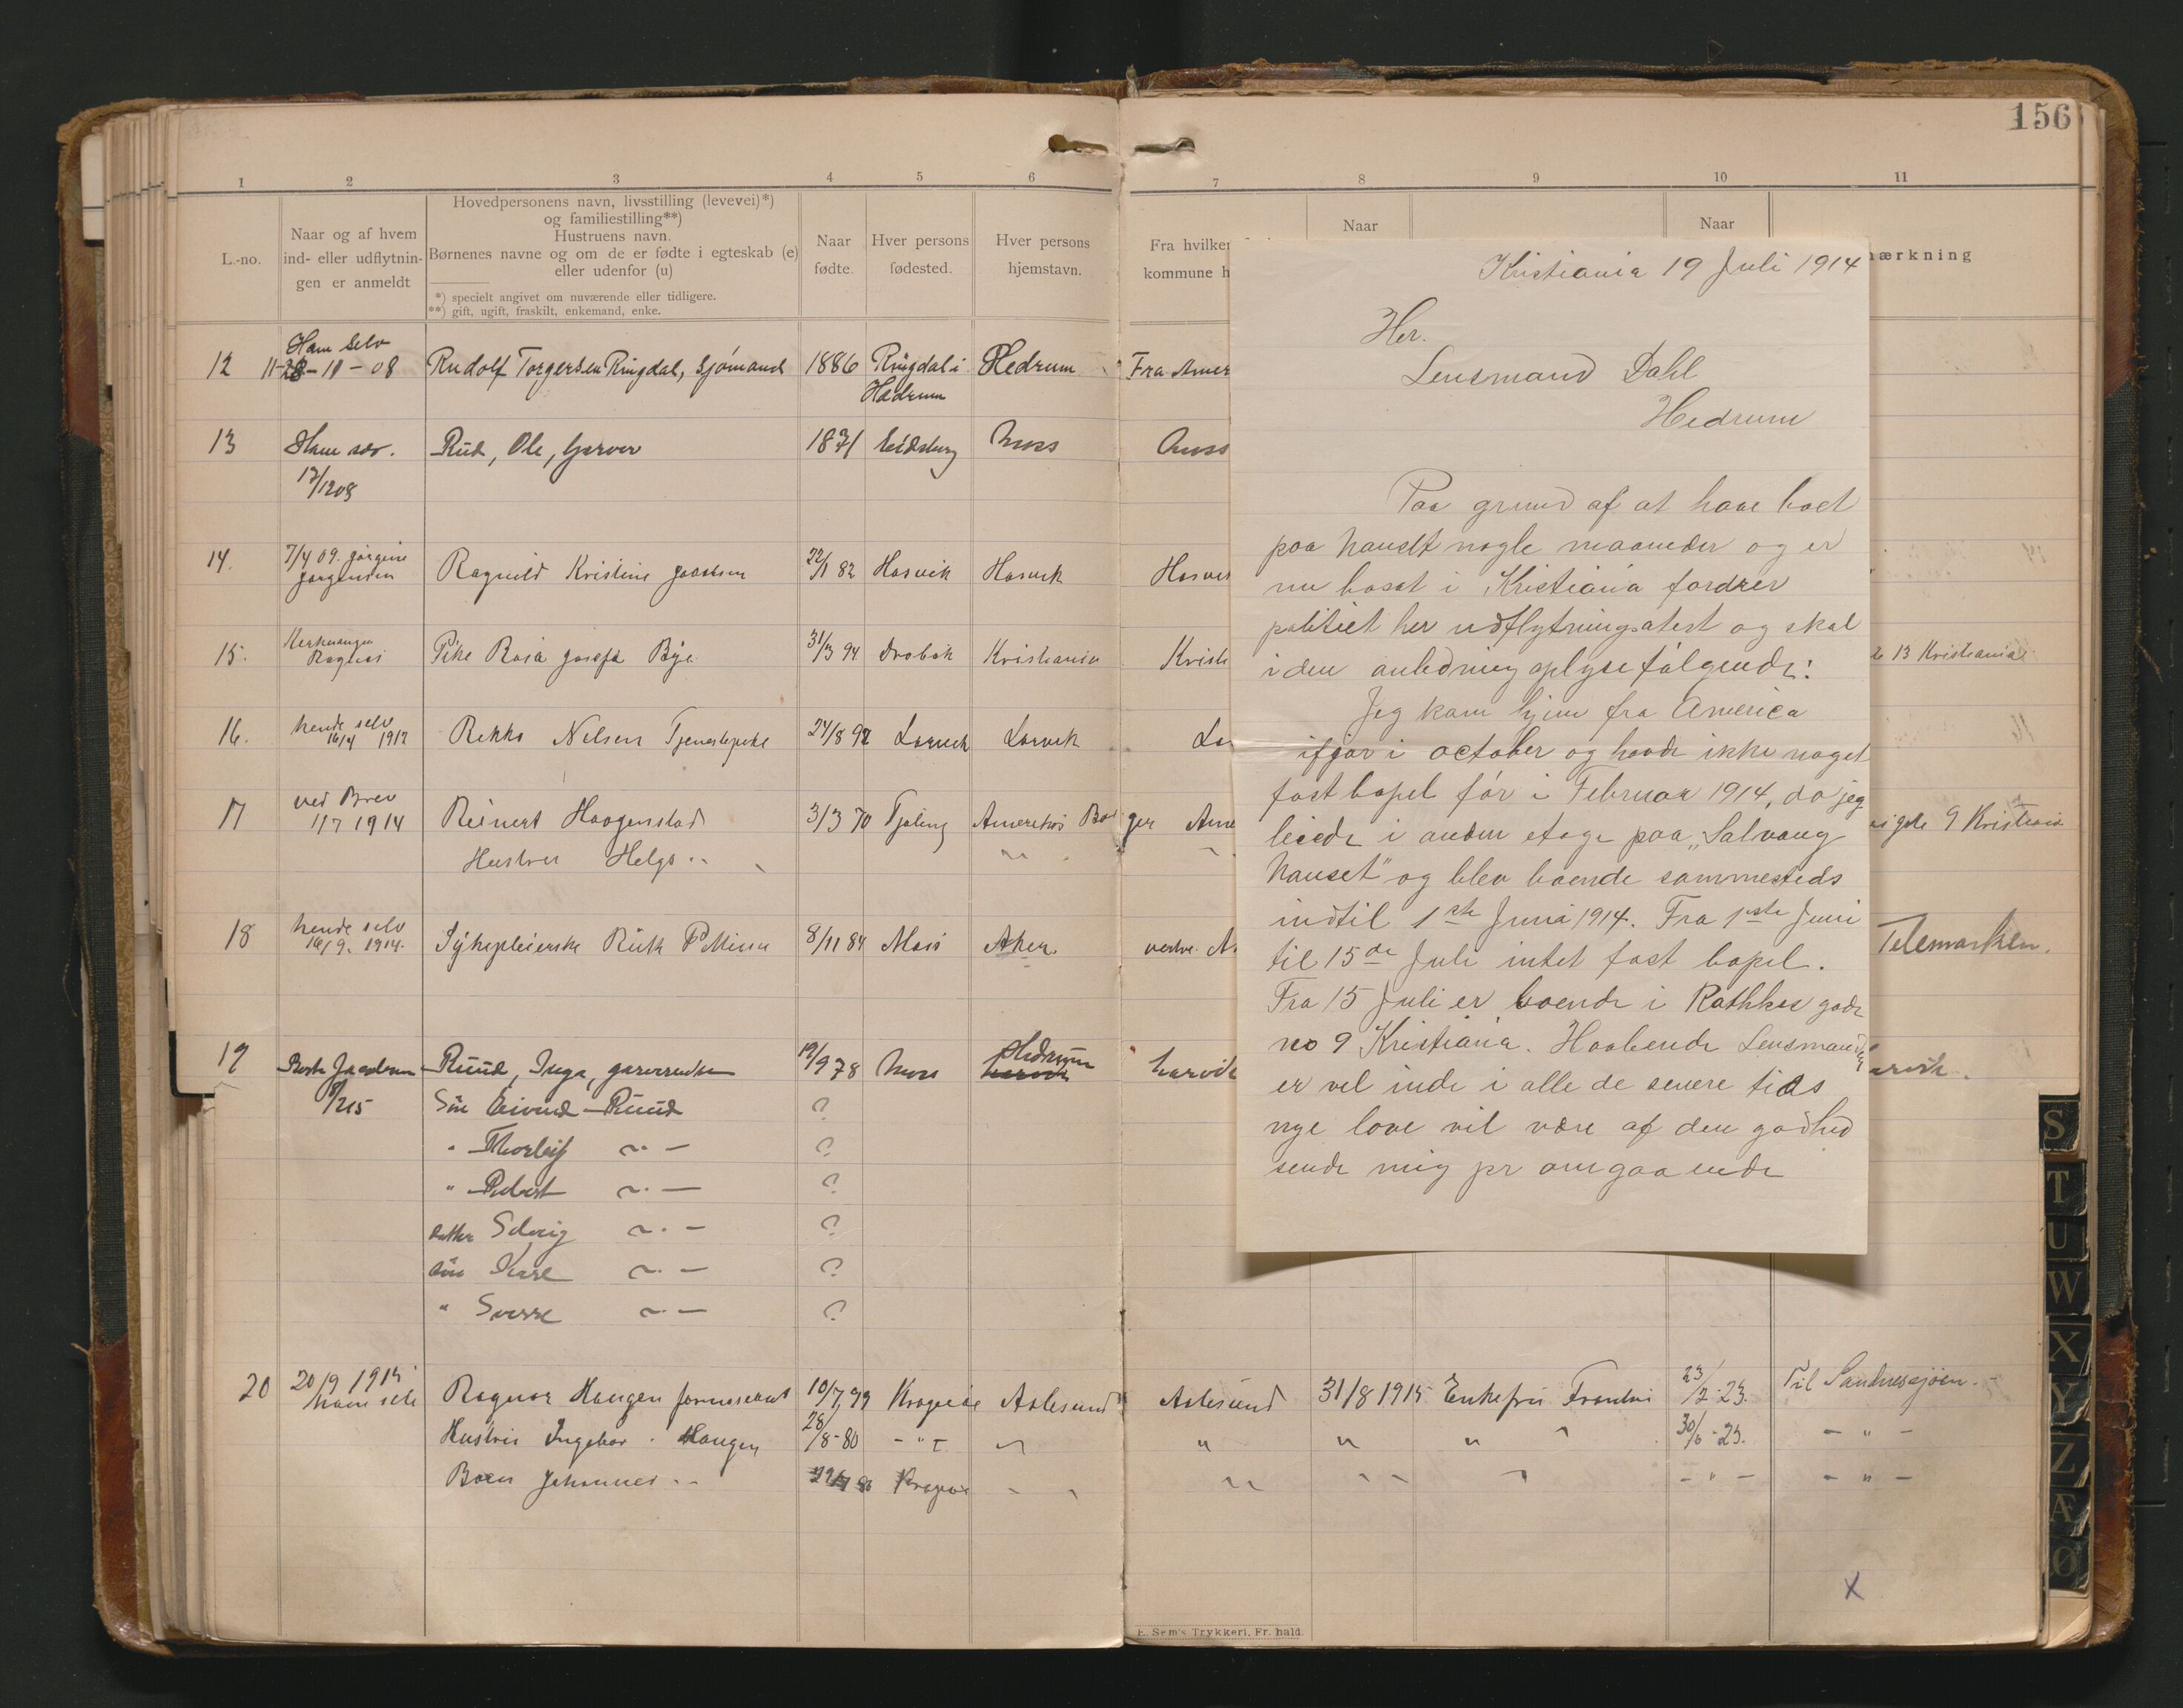 156
1 2 3 4 5 6 7 8 9 10 11
L.-no.
Naar og af hvem
ind- eller udflytnin-
gen er anmeldt
Hovedpersonens navn, livsstilling (levevei)*)
og familiestilling**)
Hustruens navn.
Børnenes navne og om de er fødte i egteskab (e)
eller udenfor (u)
*) specielt angivet om nuværende eller tidligere.
**) gift, ugift, fraskilt, enkemand, enke.
Naar
fødte.
Hver persons
fødested.
Hver persons
hjemstavn.
Fra hvilken
kommune h
Naar
Naar
mærkning
Ham selv
12 11-28-11-08 Rudolf Torgersen Ringdal, Sjømand 1886 Ringdal i Hedrum Fra Amer
Hedrum
13 Ham selv. Rud, Ole, Garver 1871 Eidsberg Moss Moss
17/12 08
14. 7/4 09. Jørgine Ragnild Kristine 22/1 82 Hasvik Hasvik Hasvik
Jørgensen
15. Pike Rosa Josefa Bye 31/3 94 Drøbak Kristiania Kristi 13 Kristiania
16. hende selv Nilsen Tjenestepike 24/8 92 Larvik Larvik La
16/4 1912
17 ved Brev Reinert Haagenstad 3/3 70 Tjøling Amerikas Borger Ame gde 9 Kristiania
1/7 1914 Hustru Helga
18 hende selv Sykepleierske Ruth 8/11 84 Moss Aker Telemarken.
16/9. 1914.
19 Ruud, Inga, 19/9 78 Moss Hedrum Larvik
Larvik
8/2 15 Søn Eivind Ruud ?
" Thorleif ~ . — ?
" Robert ~ . — ?
Datter Solveig ~ . — ?
Søn Kåre ~ . — ?
" Sverre ~ . — ?
20 20/9 1915 Ragnar Haugen 10/7 79 Kragerø Aalesund Aalesund 31/8 1915 Enkefru 23/2-23. Til Sandnessjøen.
ham selv Hustru Ingebor. Haugen 28/8-80 - " - " " " " 30/6-23. - " -
Barn Johannes Kragerø - " - - " -
Kristiania 19 Juli 1914
Her.
Lensmand Dahl
Hedrum
Paa grund af at have boet
paa Nanset nogle maaneder og er
nu bosat i Kristiania fordrer
politiet her udflytningsatest og skal
i den anledning oplyse følgende:
Jeg kom hjem fra America
ifjor i october og havde ikke noget
fast bopel før i Februar 1914, da jeg
leiede i anden etage paa „Salvang
Nanset" og blev boende sammesteds
indtil 1ste Juni 1914. Fra 1ste Juni
til 15de Juli intet fast bopel.
Fra 15 Juli er boende i Rathkes gade
no 9 Kristiania. Haabende Lensmanden
er vel inde i alle de senere tids
nye love vil være af den godhed
sende mig pr omgaaende
S
T
U
W
X
Y
Z
Æ
Ø
X
E. Sem's Trykkeri, Fr. hald.